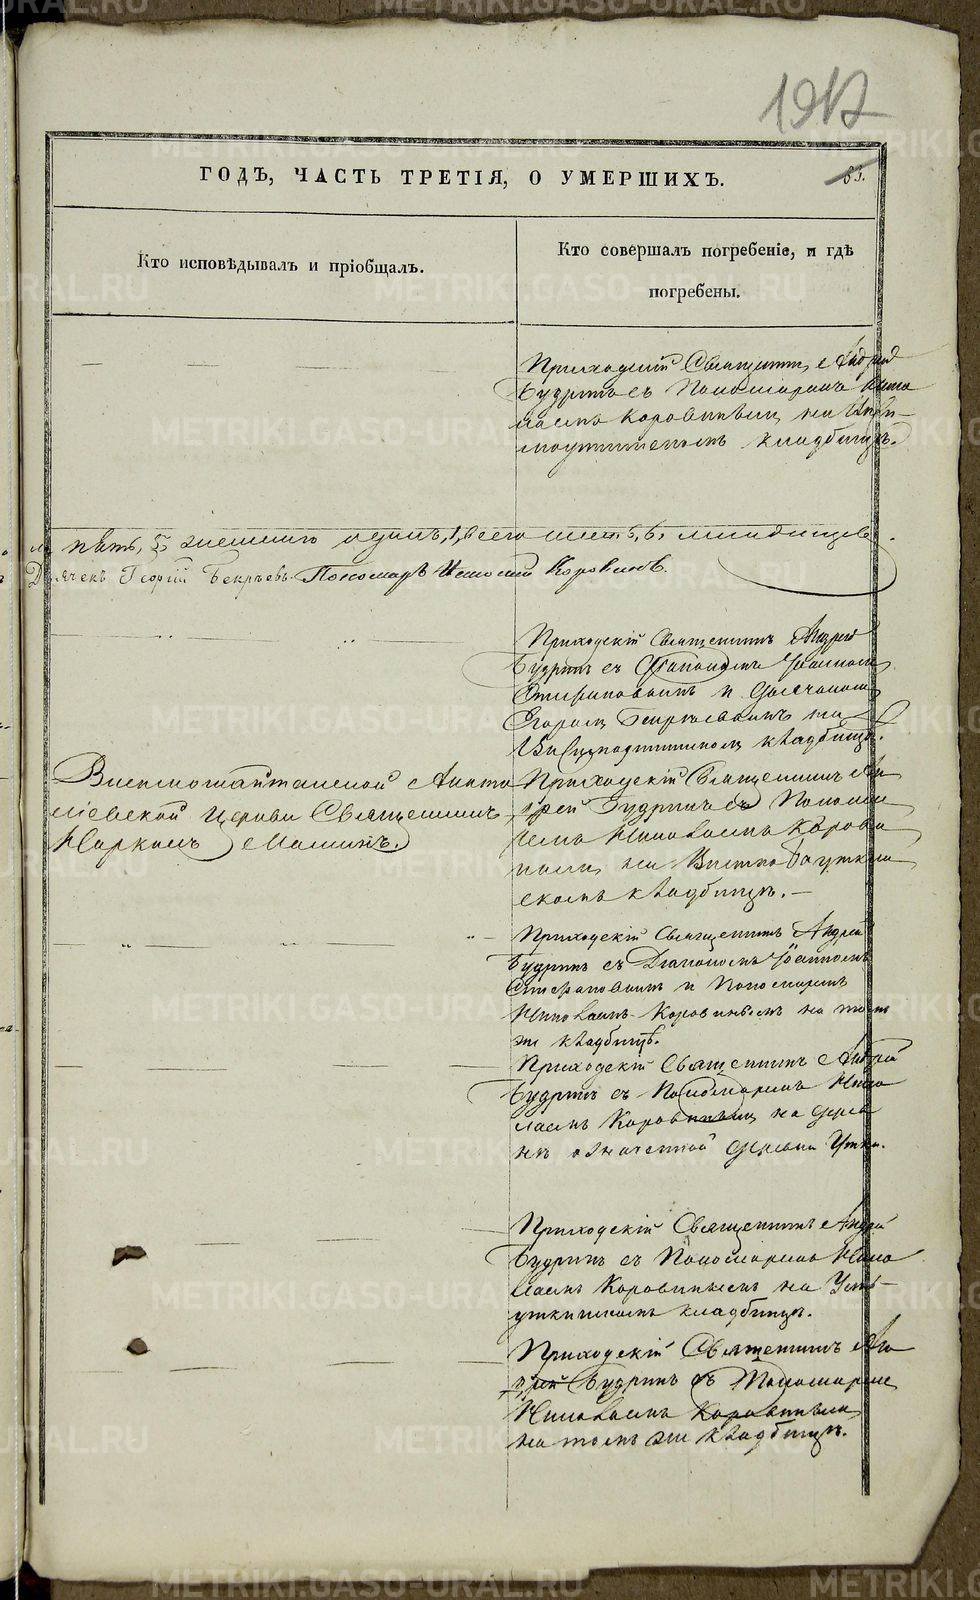 191
63.
ГОДЪ, ЧАСТЬ ТРЕТІЯ, О УМЕРШИХЪ.
Кто исповѣдывалъ и пріобщалъ.
Кто совершалъ погребеніе, и гдѣ
погребены.
Приходскій Священникъ Андрей
Будринъ съ Пономаремъ Нико
лаемъ Коровинымъ на
кладбищѣ.
пять, 5 женска одинъ, 1, всего шесть, 6, младенцевъ.
Дьячекъ Георгій Пономарь Николай Коровинъ.
Приходскій Священникъ Андрей
Будринъ съ Діакономъ Іоанномъ
Стефановымъ и дьячкомъ
Егоромъ на
кладбищѣ.
Висимошайтанской Анато
ліевской Церкви Священникъ
Марко
Приходскій Священникъ Ан
дрей Будринъ съ Понома
ремъ Николаемъ Корови
нымъ на Висимо
скомъ кладбищѣ. —
Приходскій Священникъ Андрей
Будринъ съ Діакономъ Іоанномъ
Стефановымъ и Пономаремъ
Николаемъ Коровинымъ на томъ
же кладбищѣ.
Приходскій Священникъ Андрей
Будринъ съ Пономаремъ Нико
лаемъ Коровинымъ на
означенной деревни
Приходскій Священникъ Андрей
Будринъ съ Пономаремъ Нико
лаемъ Коровинымъ на Усть-
уткинскомъ кладбищѣ.
Приходскій Священникъ Ан
дрей Будринъ съ Пономаремъ
Николаемъ Коровинымъ
на томъ же кладбищѣ.
METRIKI.GASO-URAL.RU